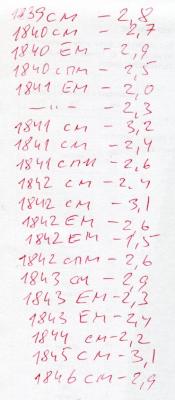 1839 СМ – 2,8
1840 СМ – 2,7
1840 ЕМ – 2,9
1840 СПМ – 2,5
1841 ЕМ – 2,0
–"– – 2,3
1841 СМ – 3,2
1841 СМ – 2,4
1841 СПМ – 2,6
1842 СМ – 2,4
1842 СМ – 3,1
1842 ЕМ – 2,6
1842 ЕМ – 1,5
1842 СПМ – 2,6
1843 СМ – 2,9
1843 ЕМ – 2,3
1843 ЕМ – 2,4
1844 СМ – 2,2
1845 СМ – 3,1
1846 СМ – 2,9